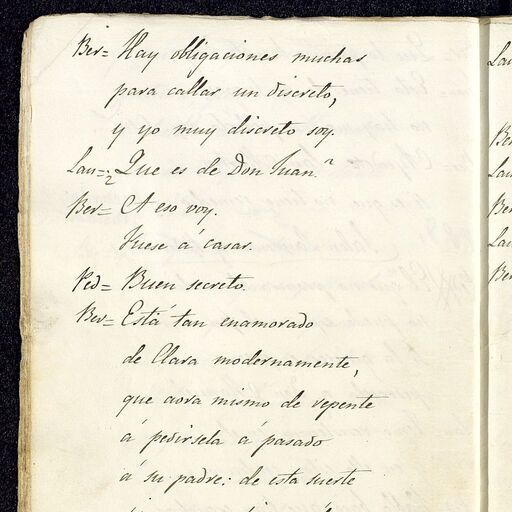 Ber= Hay obligaciones muchas
para callar un discreto,
y yo muy discreto soy.
Lau=¿Que es de Don Juan?
Ber= A eso voy.
Fuese á casar.
Ped= Buen secreto.
Ber= Está tan enamorado
de Clara modernamente,
que aora mismo de repente
á pedirsela á pasado
á su padre: de esta suerte
Lau
Ber
Lau
Ber
Lau
Ber